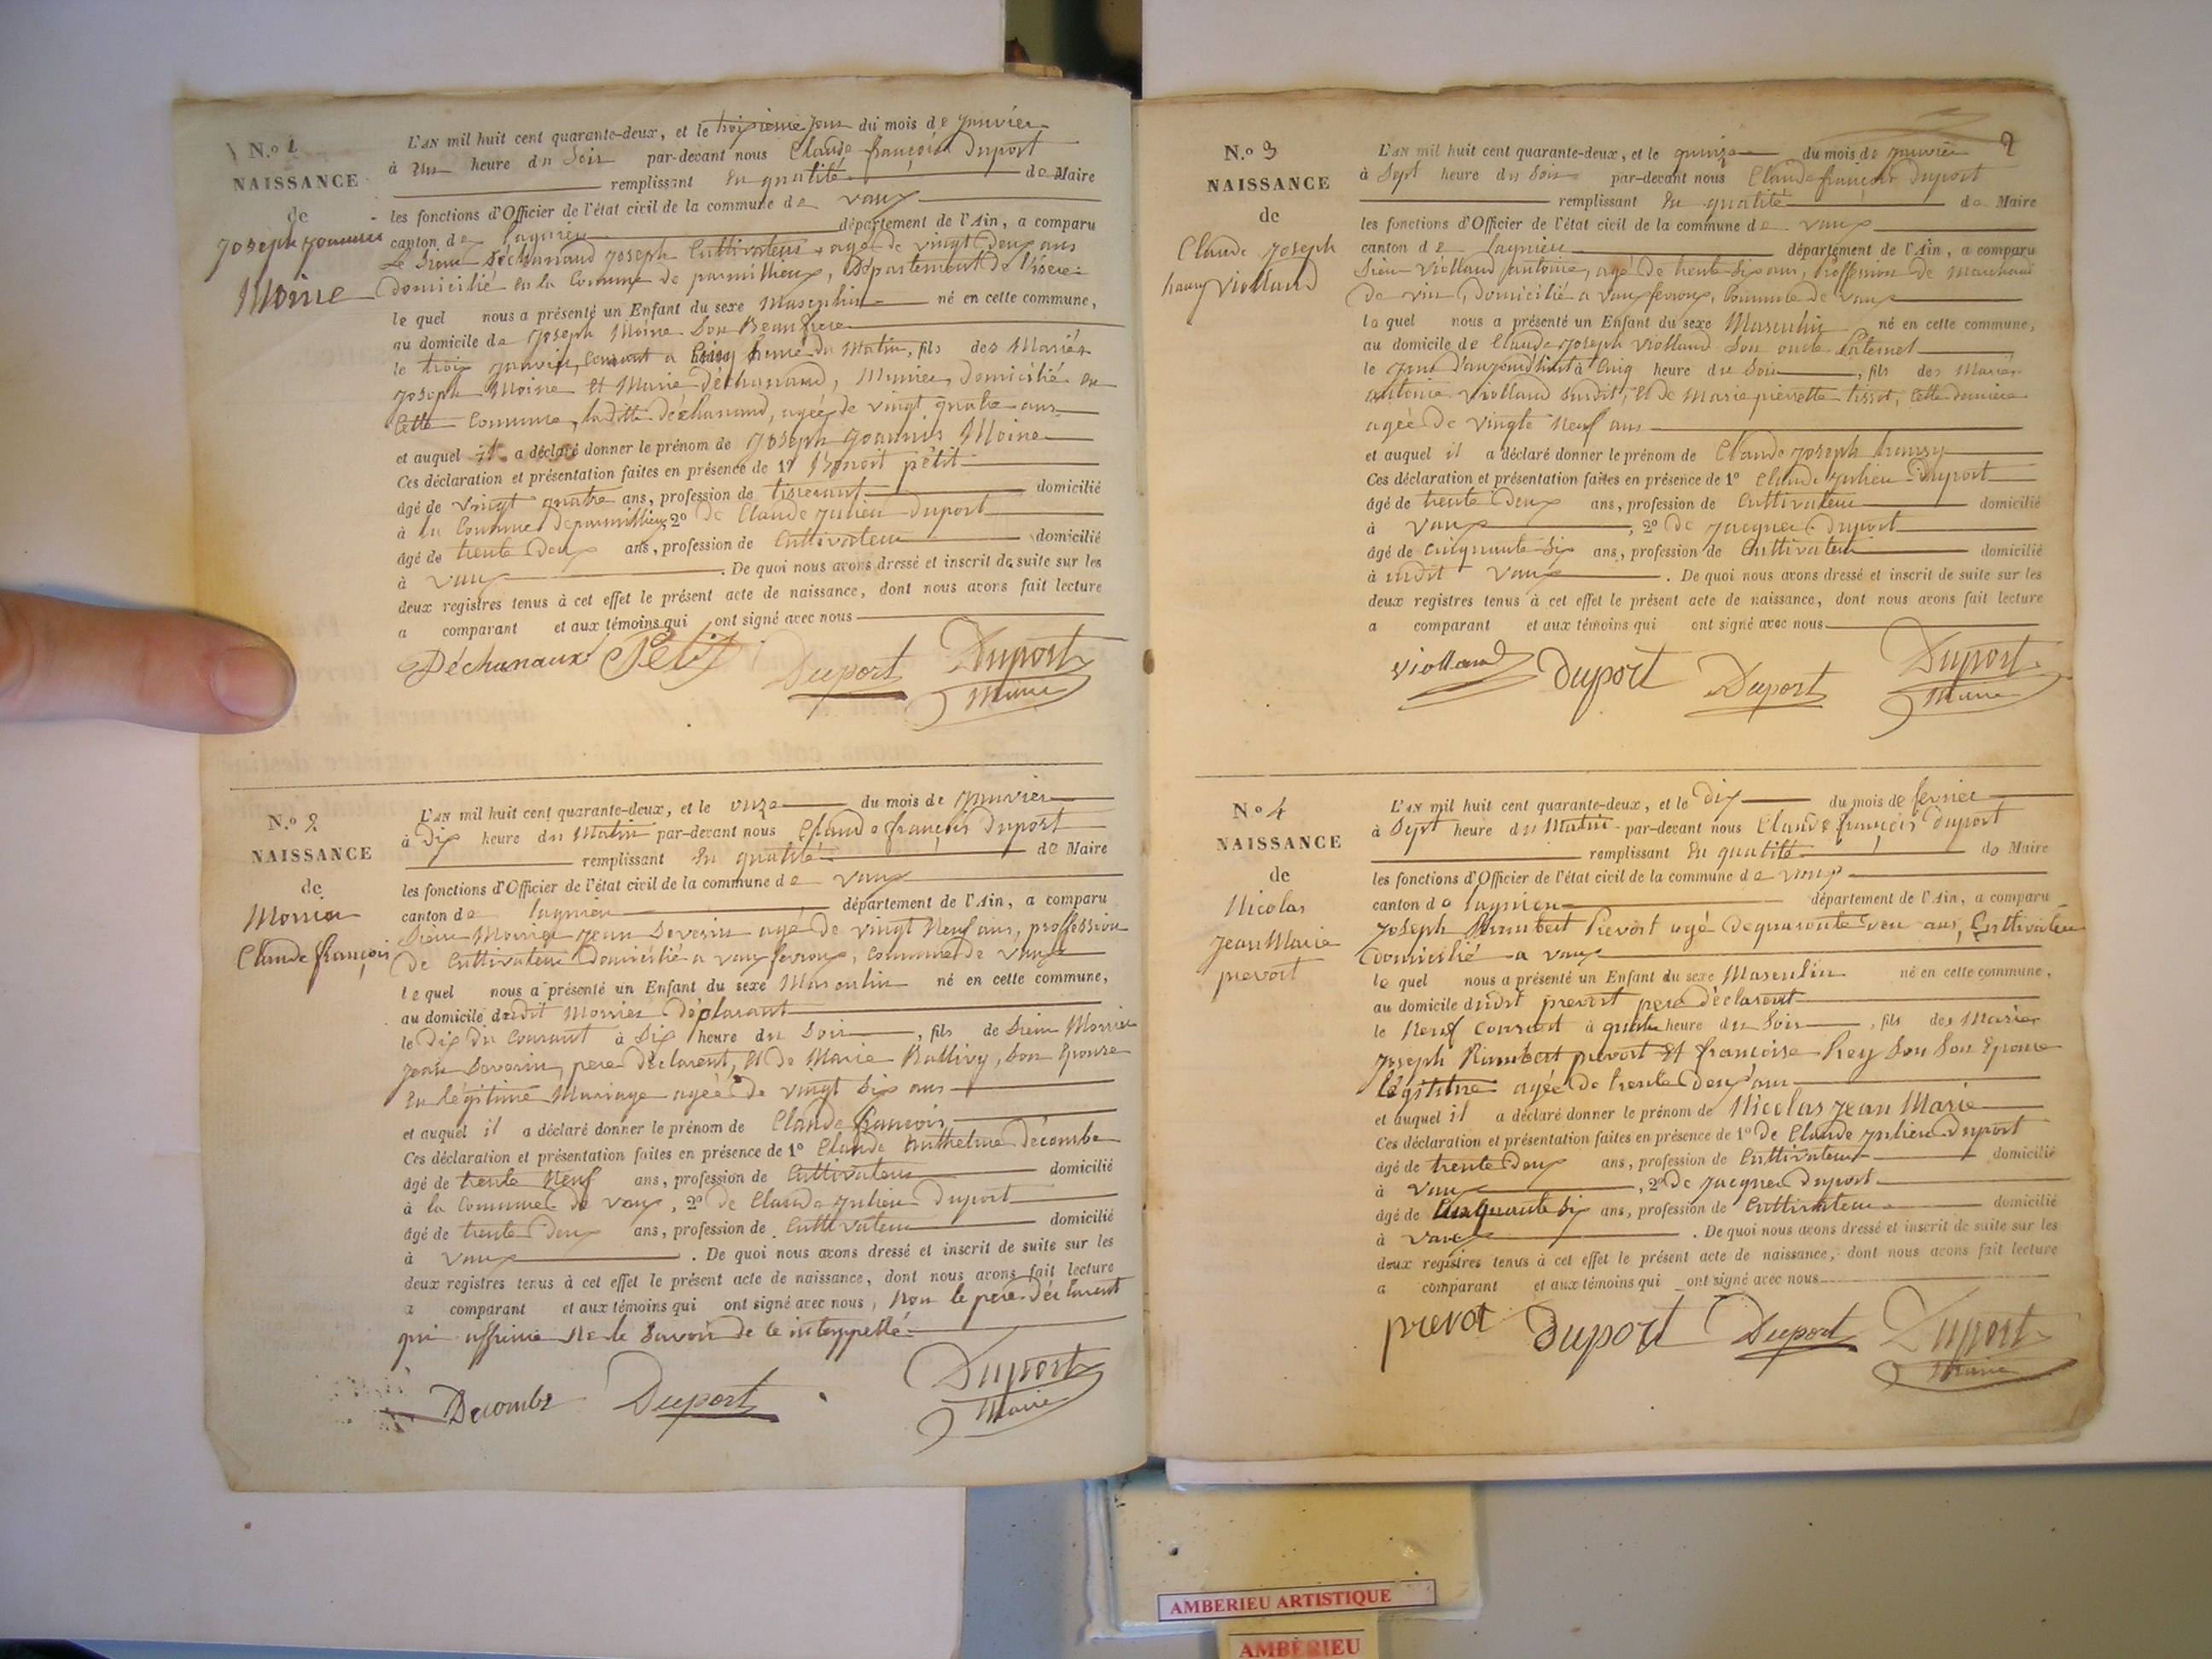 N.º 1
NAISSANCE
de
Joseph Joannes
Moine
L'AN mil huit cent quarante-deux, et le troisieme jour du mois de janvier
à une heure du Soir par-devant nous Claude françois Duport
remplissant En qualité de Maire
les fonctions d'Officier de l'état civil de la commune de vaux
canton de Lagnieu département de l'Ain, a comparu
Le Sieur Déchanaud Joseph Cultivateur, agé de vingt Deux ans
domicilié en la Commune de parmillieux, Département de l'isère
le quel nous a présenté un Enfant du sexe Masculin né en cette commune,
au domicile de Joseph Moine Son Beaufrere
le trois janvier Courant a Cinq heure du Matin, fils des Mariés
Joseph Moine et Marie Déchanaud, Meunier, Domicilié en
Cette Commune, laditte déchanaud, agée de vingt quatre ans
et auquel il a déclaré donner le prénom de Joseph Joannes Moine
Ces déclaration et présentation faites en présence de 1º Benoit pétit
âgé de vingt quatre ans, profession de tisserant domicilié
à la Commune de parmillieux 2º de Claude Julien Duport
âgé de trente Deux ans, profession de Cultivateur domicilié
à vaux. De quoi nous avons dressé et inscrit de suite sur les
deux registres tenus à cet effet le présent acte de naissance, dont nous avons fait lecture
a comparant et aux témoins qui ont signé avec nous
Déchanaux Petit Duport Duport
Maire
N.º 2
NAISSANCE
de
Monier
Claude françois
L'AN mil huit cent quarante-deux, et le onze du mois de janvier
à Dix heure du Matin par-devant nous Claude françois Duport
remplissant En qualité de Maire
les fonctions d'Officier de l'état civil de la commune de vaux
canton de Lagnieu département de l'Ain, a comparu
Sieur Monier Jean Severin agé de vingt Neuf ans, proffession
de Cultivateur Domicilié a vaux fevroux, Commune de vaux
le quel nous a présenté un Enfant du sexe Masculin né en cette commune,
au domicile dudit Monier Déclarant
le Dix du Courant à Dix heure du Soir, fils de Sieur Monier
Jean Severin, pere Déclarent, et de Marie Ballivy, Son Epouse
En légitime Mariage agée de vingt Six ans
et auquel il a déclaré donner le prénom de Claude françois
Ces déclaration et présentation faites en présence de 1º Claude Anthelme Décombe
âgé de trente Neuf ans, profession de Cultivateur domicilié
à la Commune de vaux, 2º de Claude Julien Duport
âgé de trente Deux ans, profession de Cultivateur domicilié
à vaux. De quoi nous avons dressé et inscrit de suite sur les
deux registres tenus à cet effet le présent acte de naissance, dont nous avons fait lecture
a comparant et aux témoins qui ont signé avec nous, Non le pere Déclarent
qui affirme Ne le Savoir de ce interppellé
Decombe Duport Duport
Maire
2
N.º 3
NAISSANCE
de
Claude Joseph
Viollaud
L'AN mil huit cent quarante-deux, et le quinze du mois de janvier
à Sept heure du Soir par-devant nous Claude françois Duport
remplissant En qualité de Maire
les fonctions d'Officier de l'état civil de la commune de vaux
canton de Lagnieu département de l'Ain, a comparu
Sieur Viollaud antoine, agé de trente Six ans, Proffession de Marchand
De vin, Domicilié a vaux fevroux, Commune de vaux
le quel nous a présenté un Enfant du sexe Masculin né en cette commune,
au domicile de Claude Joseph Viollaud Son oncle Paternel
le jour d'aujourd'huit à Cinq heure du Soir, fils des Mariés
antoine Viollaud Surdit, Et de Marie pierrette tissot, Cette derniere
agée De vingte Neuf ans
et auquel il a déclaré donner le prénom de Claude Joseph
Ces déclaration et présentation faites en présence de 1º Claude Julien Duport
âgé de trente Deux ans, profession de Cultivateur domicilié
à vaux, 2º de Jacques Duport
âgé de Cinquante Six ans, profession de Cultivateur domicilié
à sudit vaux. De quoi nous avons dressé et inscrit de suite sur les
deux registres tenus à cet effet le présent acte de naissance, dont nous avons fait lecture
a comparant et aux témoins qui ont signé avec nous
Viollaud duport Duport Duport
Maire
Nº 4
NAISSANCE
de
Nicolas
Jean Marie
prevost
L'AN mil huit cent quarante-deux, et le Dix du mois de fevrier
à Sept heure du Matin par-devant nous Claude françois Duport
remplissant En qualité de Maire
les fonctions d'Officier de l'état civil de la commune de vaux
canton de Lagnieu département de l'Ain, a comparu
Joseph Rambert Prevost agé de quarante un ans, Cultivateur
Domicilié a vaux
le quel nous a présenté un Enfant du sexe Masculin né en cette commune,
au domicile dudit prevost pere déclarent
le Neuf Courant à quatre heure du Soir, fils des Mariés
Joseph Rambert prevost Et francoise Rey Son Son Epouse
légitime agée de trente Deux ans
et auquel il a déclaré donner le prénom de Nicolas Jean Marie
Ces déclaration et présentation faites en présence de 1º De Claude Julien Duport
âgé de trente Deux ans, profession de Cultivateur domicilié
à vaux, 2º De Jacques Duport
âgé de Cinquante Six ans, profession de Cultivateur domicilié
à vaux. De quoi nous avons dressé et inscrit de suite sur les
deux registres tenus à cet effet le présent acte de naissance, dont nous avons fait lecture
a comparant et aux témoins qui ont signé avec nous
prevot duport Duport Duport
Maire
AMBERIEU ARTISTIQUE
AMBÉRIEU